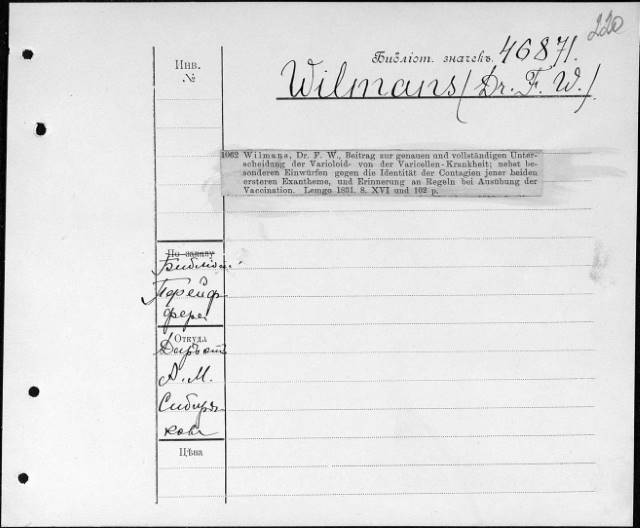 220
Библіот. значекъ. 46871.
Инв.
№
Wilmans (Dr. F. W.)
1062 Wilmans, Dr. F. W., Beitrag zur genauen und vollständigen Unter-
scheidung der Varioloid- von der Varicellen-Krankheit; nebst be-
sonderen Einwürfen gegen die Identität der Contagien jener beiden
ersteren Exantheme, und Erinnerung an Regeln bei Ausübung der
Vaccination. Lemgo 1831. 8. XVI und 102 p.
По заказу
Библіот.
Пфейф-
фера
Откуда
Даръ отъ
А. М.
Сибиря-
кова
Цѣна